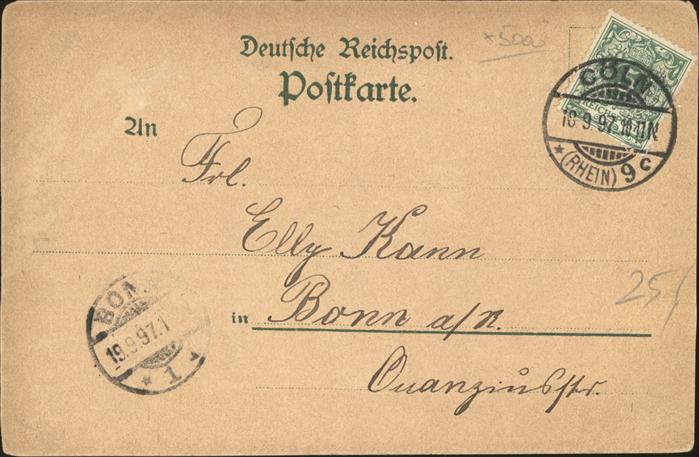 *5000
Deutsche Reichspost.
Postkarte.
CÖLN
18.9.97.10-11N
* (RHEIN) 9c
An Frl.
Elly Kann
in Bonn a/R.
Quanziusstr.
25/
BONN
19.9.97.
* 1